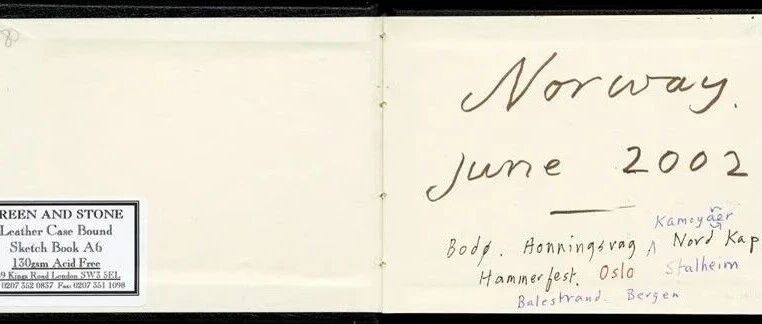 REEN AND STONE
Leather Case Bound
Sketch Book A6
130gsm Acid Free
9 Kings Road London SW3 5EL
0207 352 0837 Fax: 0207 351 1098
Norway.
June 2002
Bodø. Honningsvag ^ Nord Kap
Hammerfest. Oslo Stalheim
Balestrand. Bergen